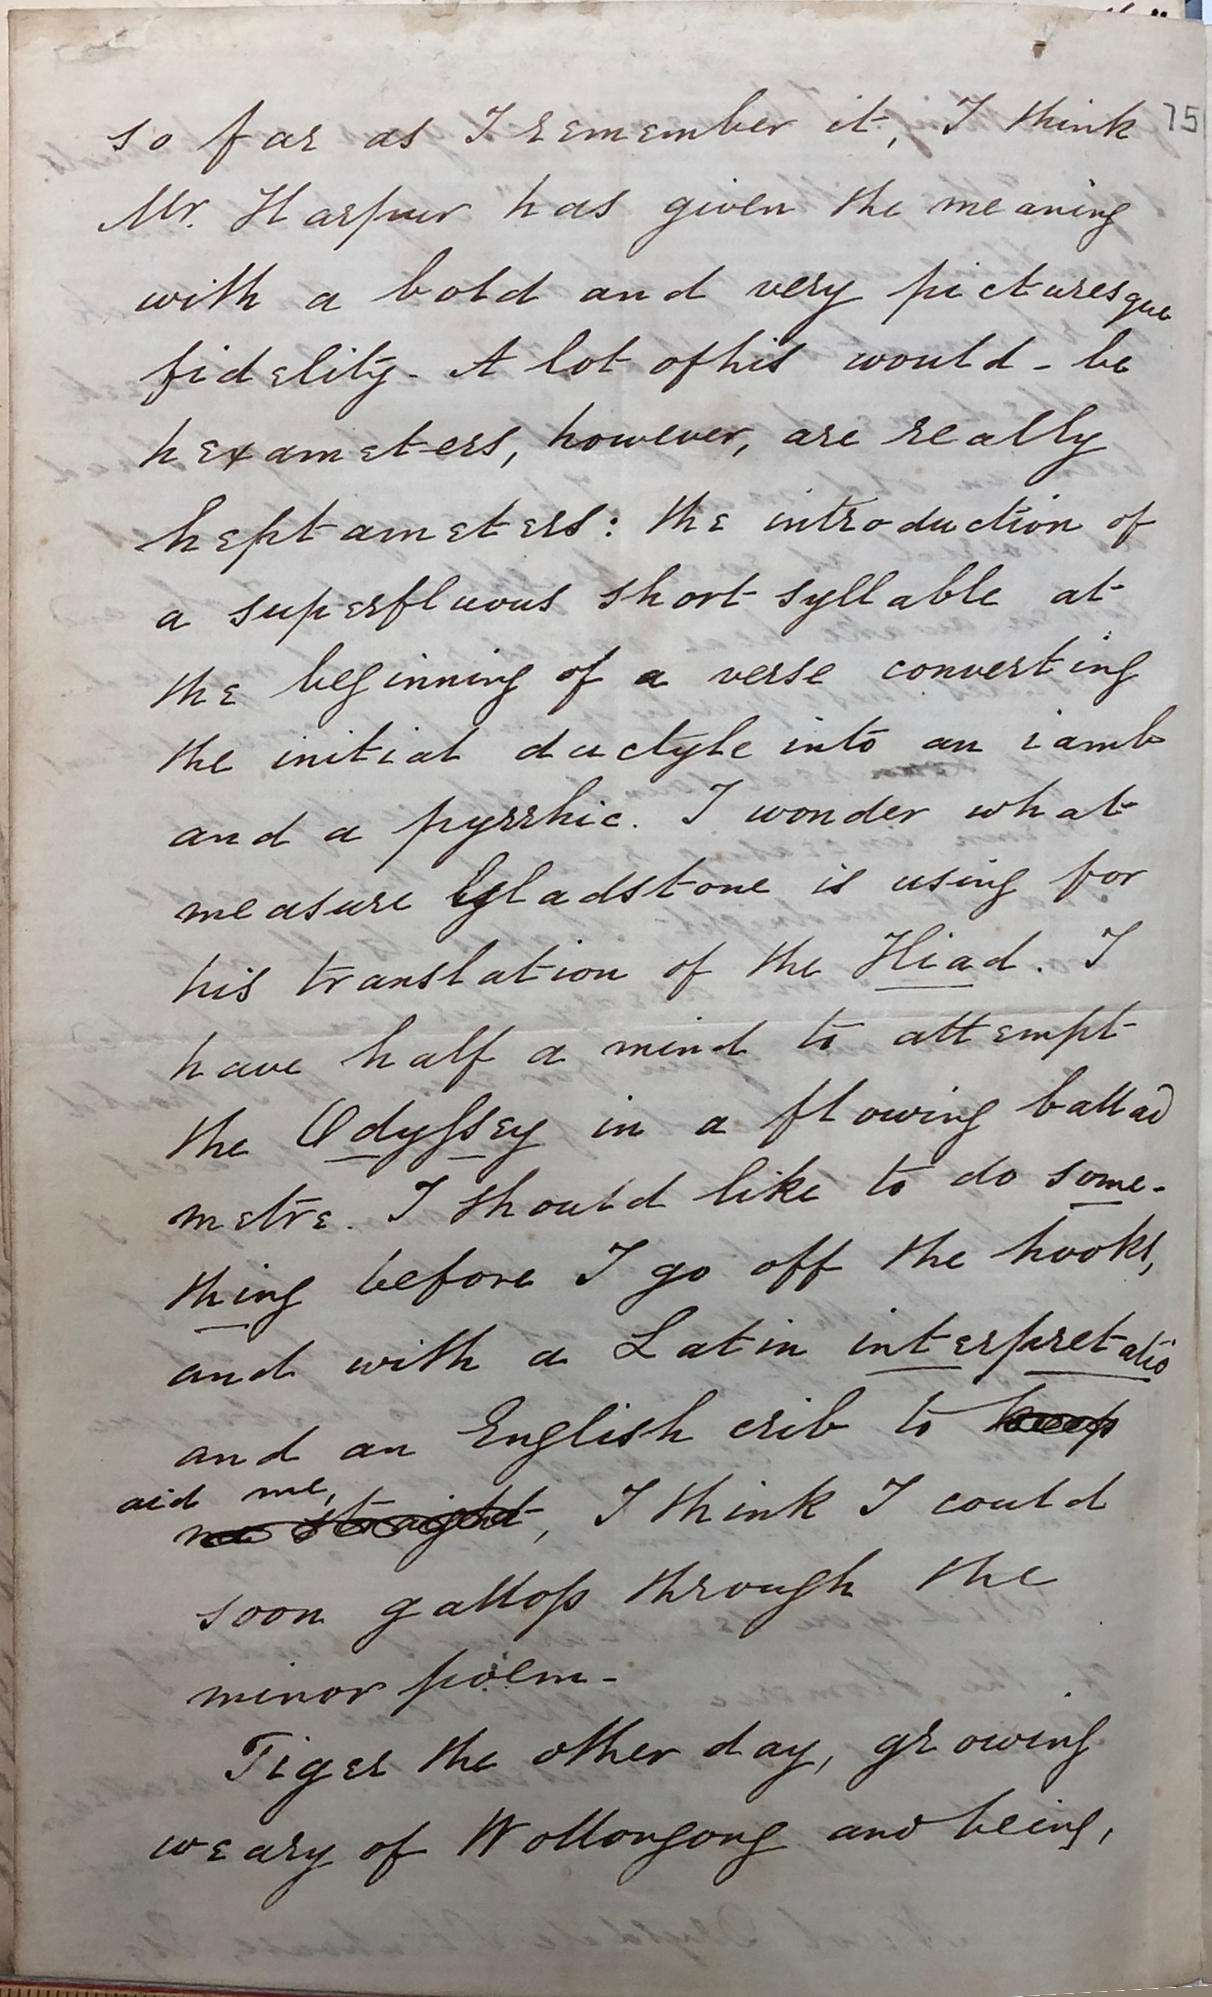 75
so far as I remember it, I think
Mr. Harpur has given the meaning
with a bold and very picturesque
fidelity. A lot of his would-be
hexameters, however, are really
heptameters: the introduction of
a superfluous short syllable at
the beginning of a verse converting
the initial dactyle into an iamb
and a pyrrhic. I wonder what
measure Gladstone is using for
his translation of the Iliad. I
have half a mind to attempt
the Odyssey in a flowing ballad
metre. I should like to do some-
thing before I go off the hooks,
and with a Latin interpretatio
and an English crib to keep
aid me,
me straight, I think I could
soon gallop through the
minor poem.
Tiger the other day, growing
weary of Wollongong and being,